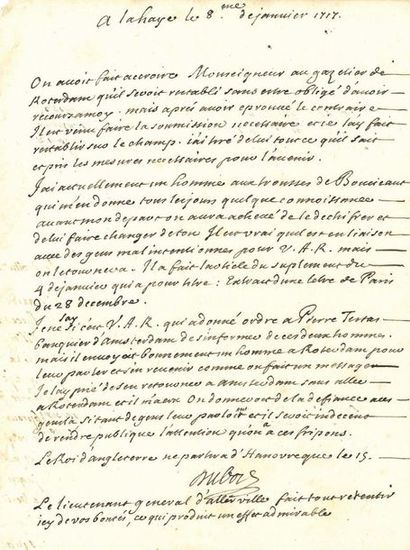 A la haye le 8.me de janvier 1717.
On avoit fait accroire Monseigneur au gazetier de
Roterdam qu'il seroit rétabli sans estre obligé d'avoir
recours a moy. mais aprés avoir eprouvé le contraire
Il est venu faire la soumission necessaire et je l'ay fait
rétablir sur le champ. j'ai tiré de lui tout ce qu'il sait
et pris les mesures necessaires pour l'avenir.
J'ai actuellement un homme aux trousses de
qui m'en donne tous les jours quelque connoissance
avant mon depart on aura achevé de le dechifrer et
de lui faire changer de ton. Il est vrai qu'il est en liaison
avec des gens mal intentionnes pour V. A. R. mais
on le tournera. Il a fait l'article du suplement du
4 de janvier qui a pour titre: Extrait d'une letre de Paris
du 28 decembre.
Je ne sai si c'est V. A. R. qui a donné ordre a Pierre
banquier d'Amsterdam de s'informer de ces deux hommes.
mais il envoyoit bonnement un homme a Roterdam pour
leur parler et s'en revenir comme on fait un messager
Je l'ay prié de s'en retourner a Amsterdam sans aller
a Roterdam et il n'ira On donneroit de la defiance a ces
gens la si tant de gens leur parloient et il seroit indecent
de rendre publique l'attention qu'on a a ces fripons.
Le Roi d'angleterre ne partira d'Hanovre que le 15.
Dubois
Le lieutenant general d'allerville fait tout retentir
icy de vos bontés, ce qui produit un effet admirable